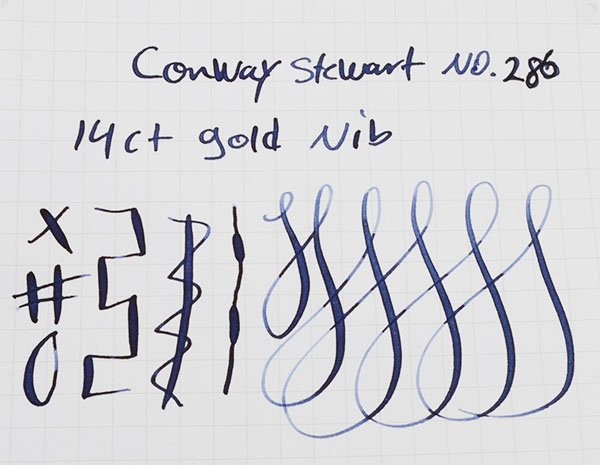 Conway Stewart NO. 286
14ct gold Nib
X
#
O